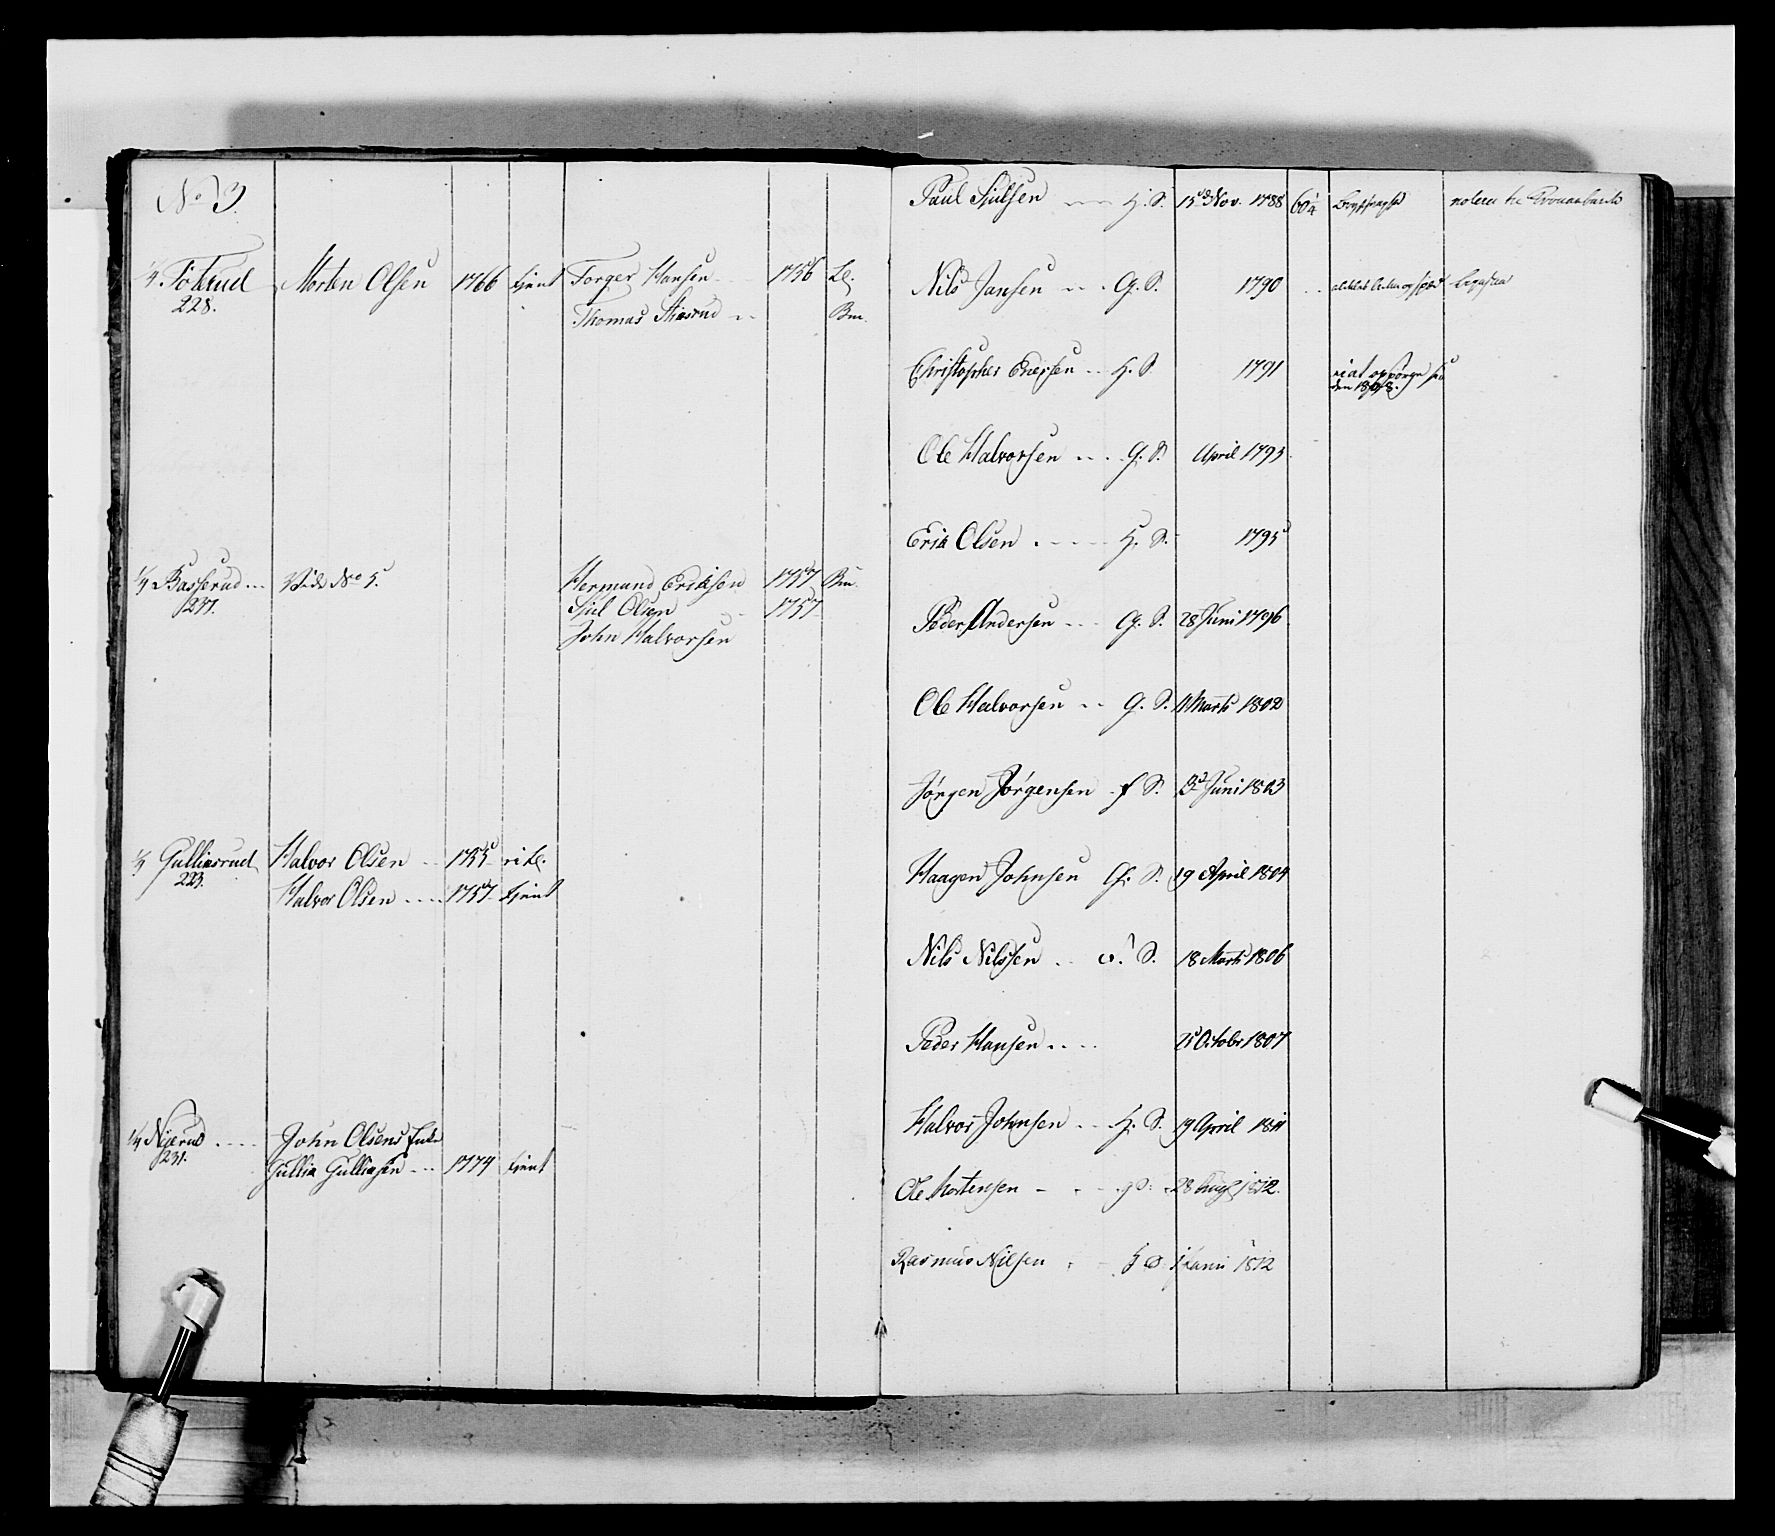 No 3.
1/4 Toterud Morten Olsen 1766 tjent Torger Hansen 1756
228. Thomas Bm.
1/4 Basserud Vide No 5. Hermand Erikson 1757 Bm.
237. Siul Olsen 1757
John Halvorsen
1/3 Gulliksrud Halvor Olsen 1755
223. Halvor Olsen 1757 tjent
1/4 John Olsens Enke
231. Gullik Gulliksen 1774 tjent
Paul Siulsen H. S. 15de Nov. 1788 60 1/4
Nils Jansen G. S. 1790
Christopher H. S. 1791
Ole Halvorsen G. S. April 1793
Erik Olsen H. S. 1795
Peder Andersen G. S. 28 Juni 1796
Ole Halvorsen G. S. 11 Marts 1802
Jørgen Jørgensen S. Juni 1803
Haagen Johnsen G. S. 19 April 1804
Nils Nilssen S. 18 Marts 1806
Peder Hansen 25 Octobr 1807
Halvor Johnsen H. S. 19 April 1811
Ole Mortensen g S. 28 Aug 1812.
Rasmus Nilsen 1 Junii 1812